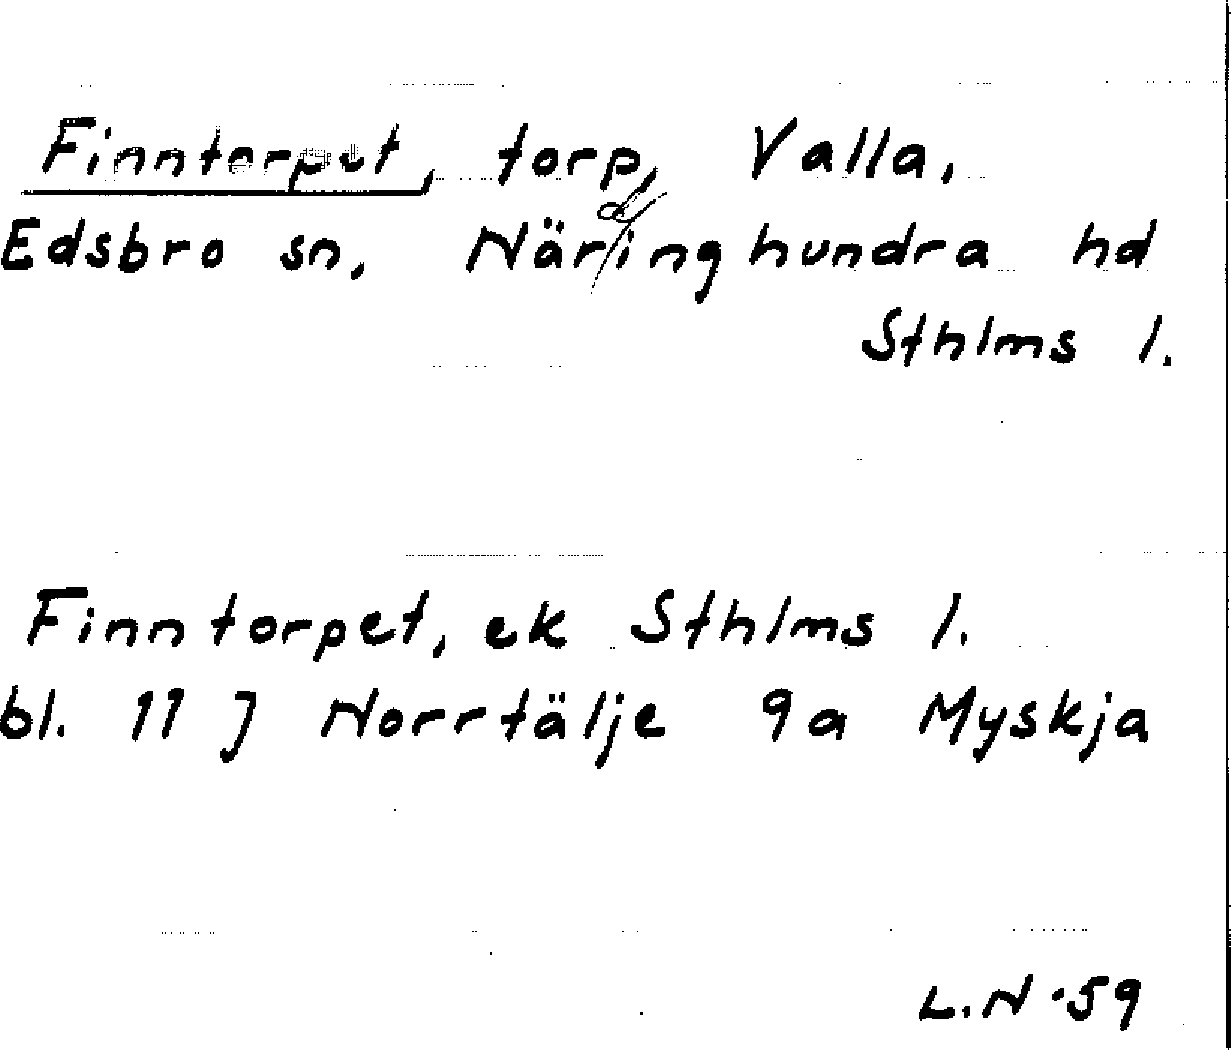 Finntorpet, torp, Valla,
Edsbro sn, Närdinghundra hd
Sthlms l.
Finntorpet, ek Sthlms l.
bl. 11 J Norrtälje 9a Myskja
L.N -59